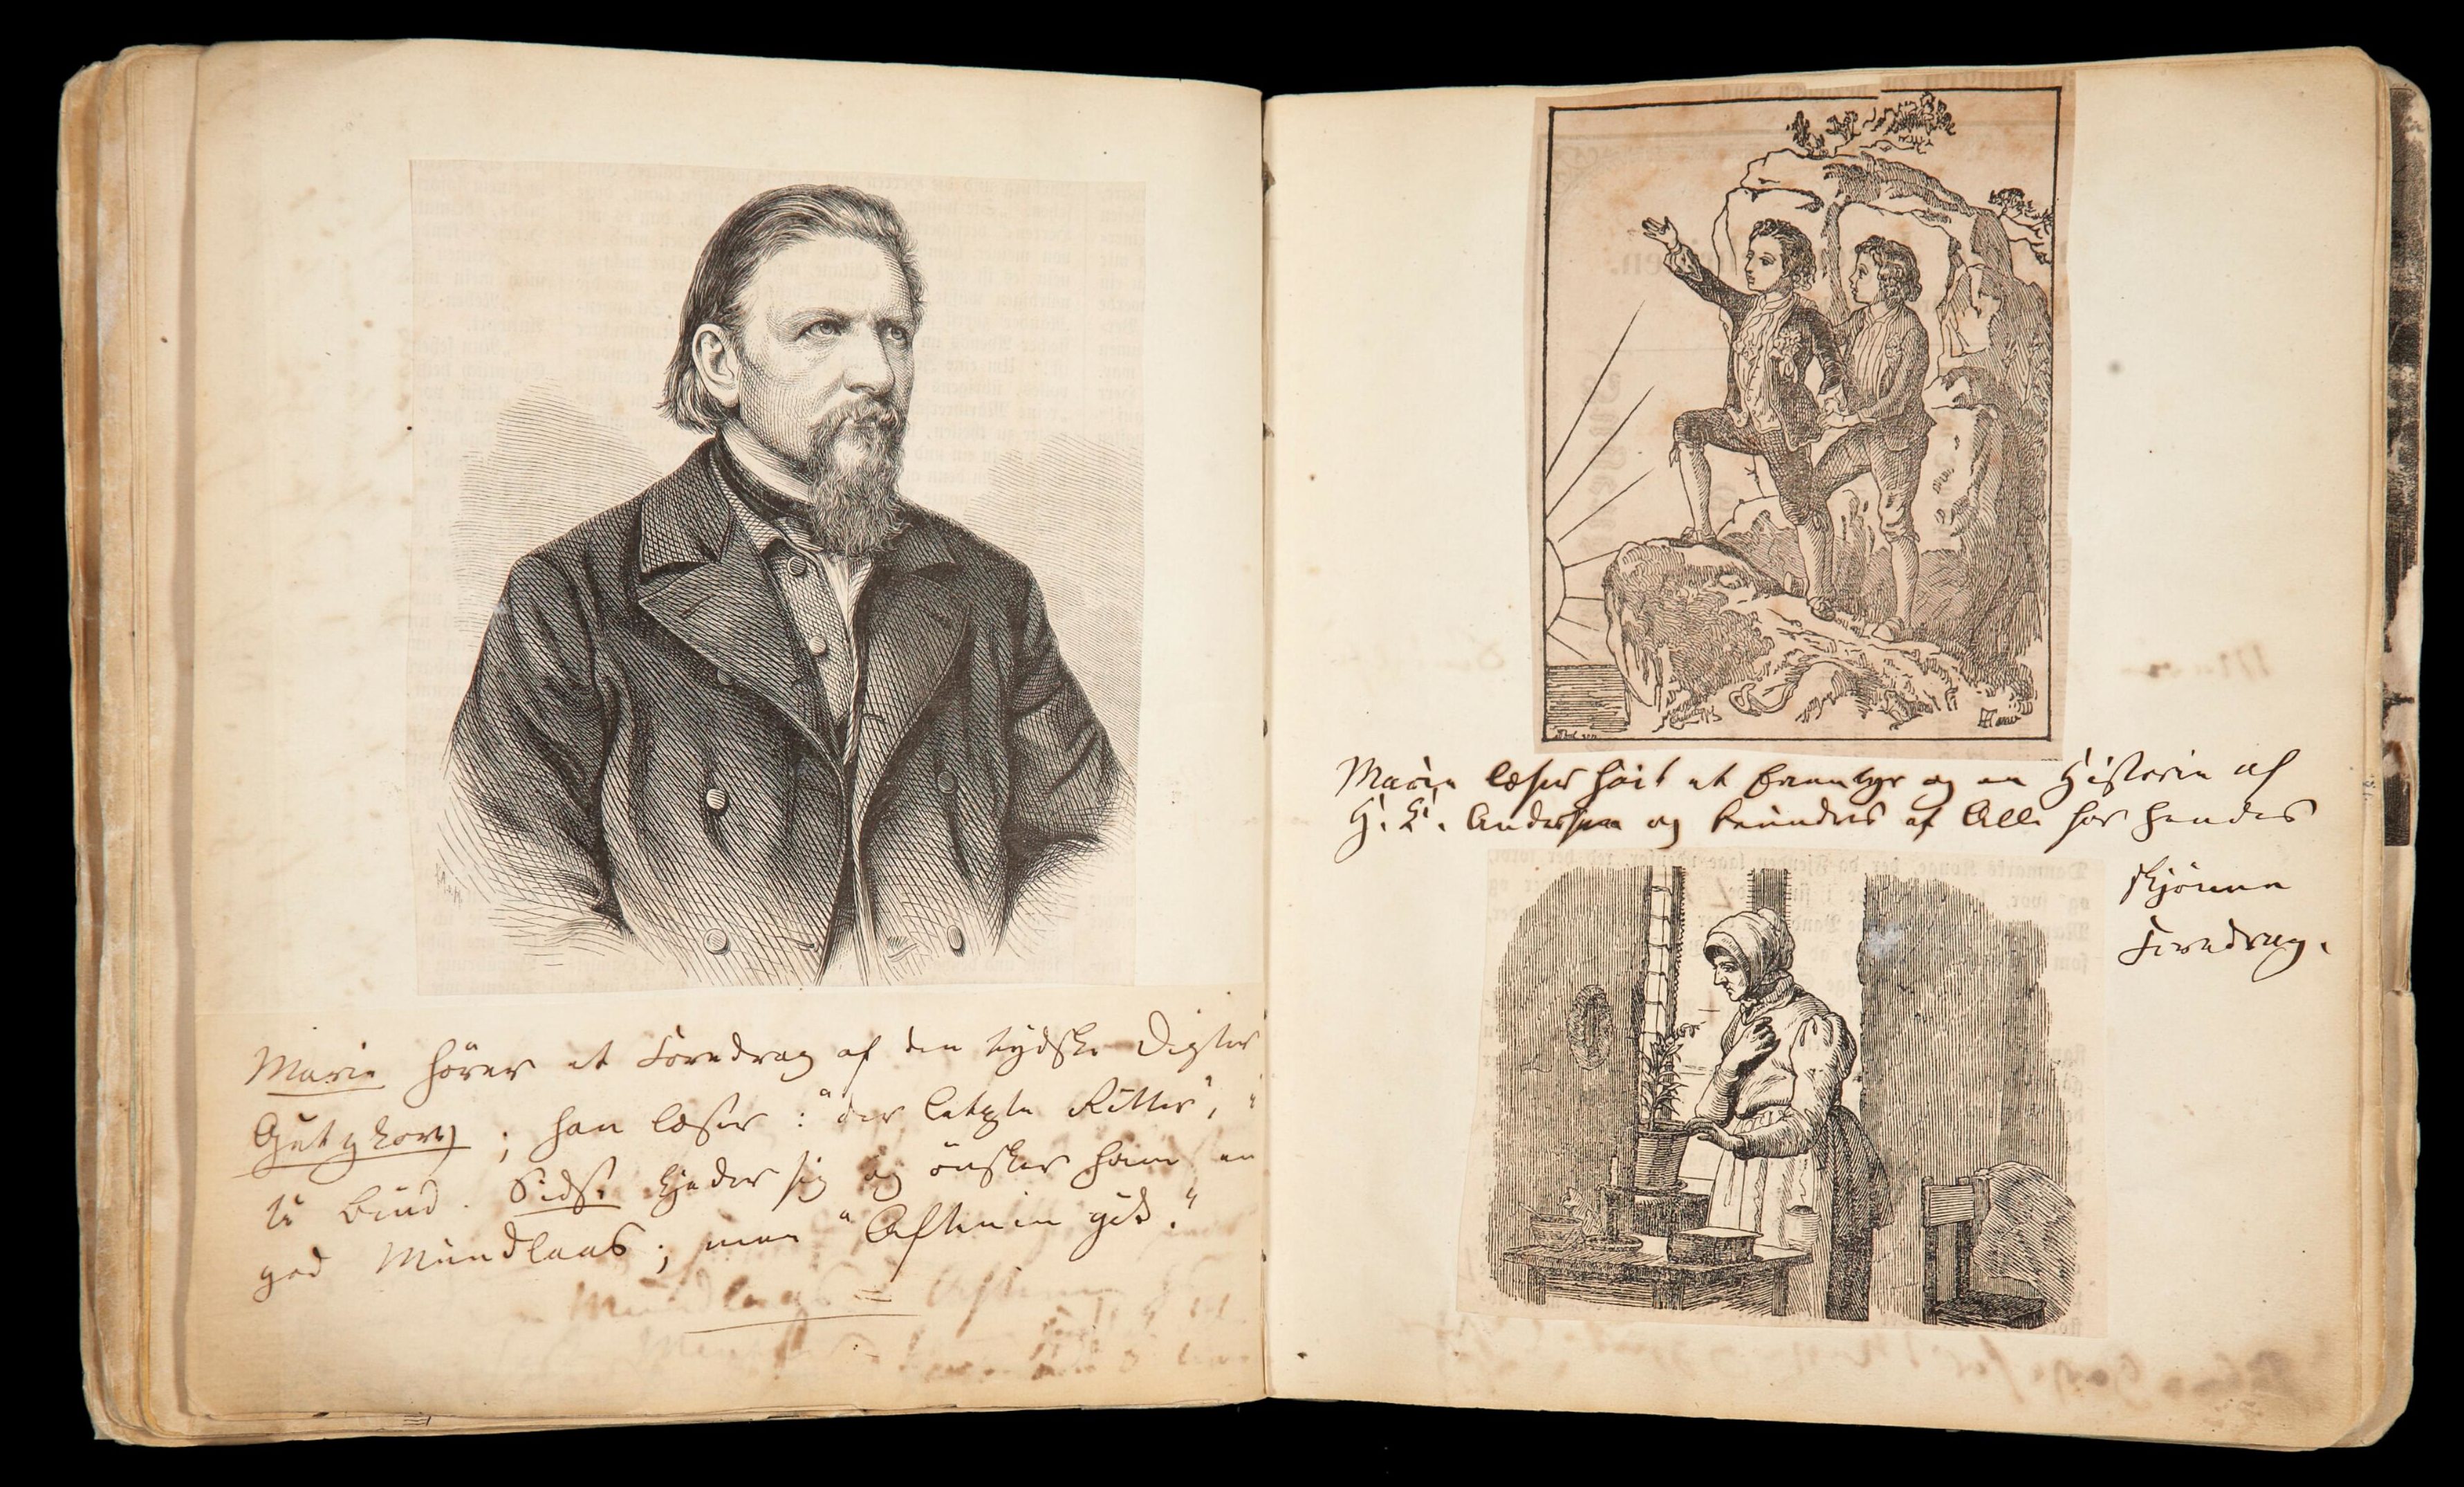 Marie hörer et Foredrag af den tydske Digter
Gutzkow; han læser: "der letzte Ritter", i
ti Bind. Sidse kjeder sig og önsker ham en
god Mundlaas; men "Aftenen gik."
Marie læser høit et Eventyr og en Historie af
H. C. Andersen og beundres af Alle for hendes
skjönne
Foredrag.